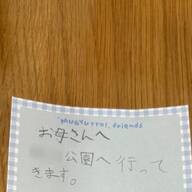 お母さんへ
公園へ行って
きます。